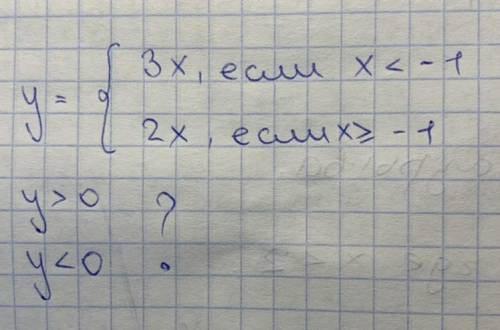 y = { 3x, если x < -1
2x, если x ≥ -1
y > 0 ?
y < 0